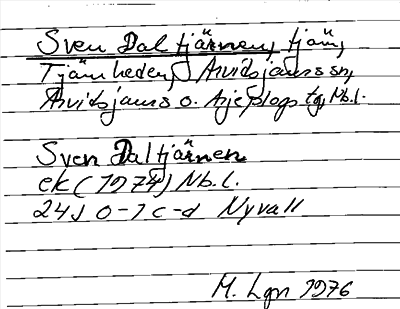 Sven Dal tjärnen, tjärn,
Tjärnheden, Arvidsjaurs sn,
Arvidsjaurs o. Arjeplogs tg, Nb.l.
Sven Daltjärnen
ek (1974) Nb.l.
24J 0-1 c-d Nyvall
M. Lgn 1976